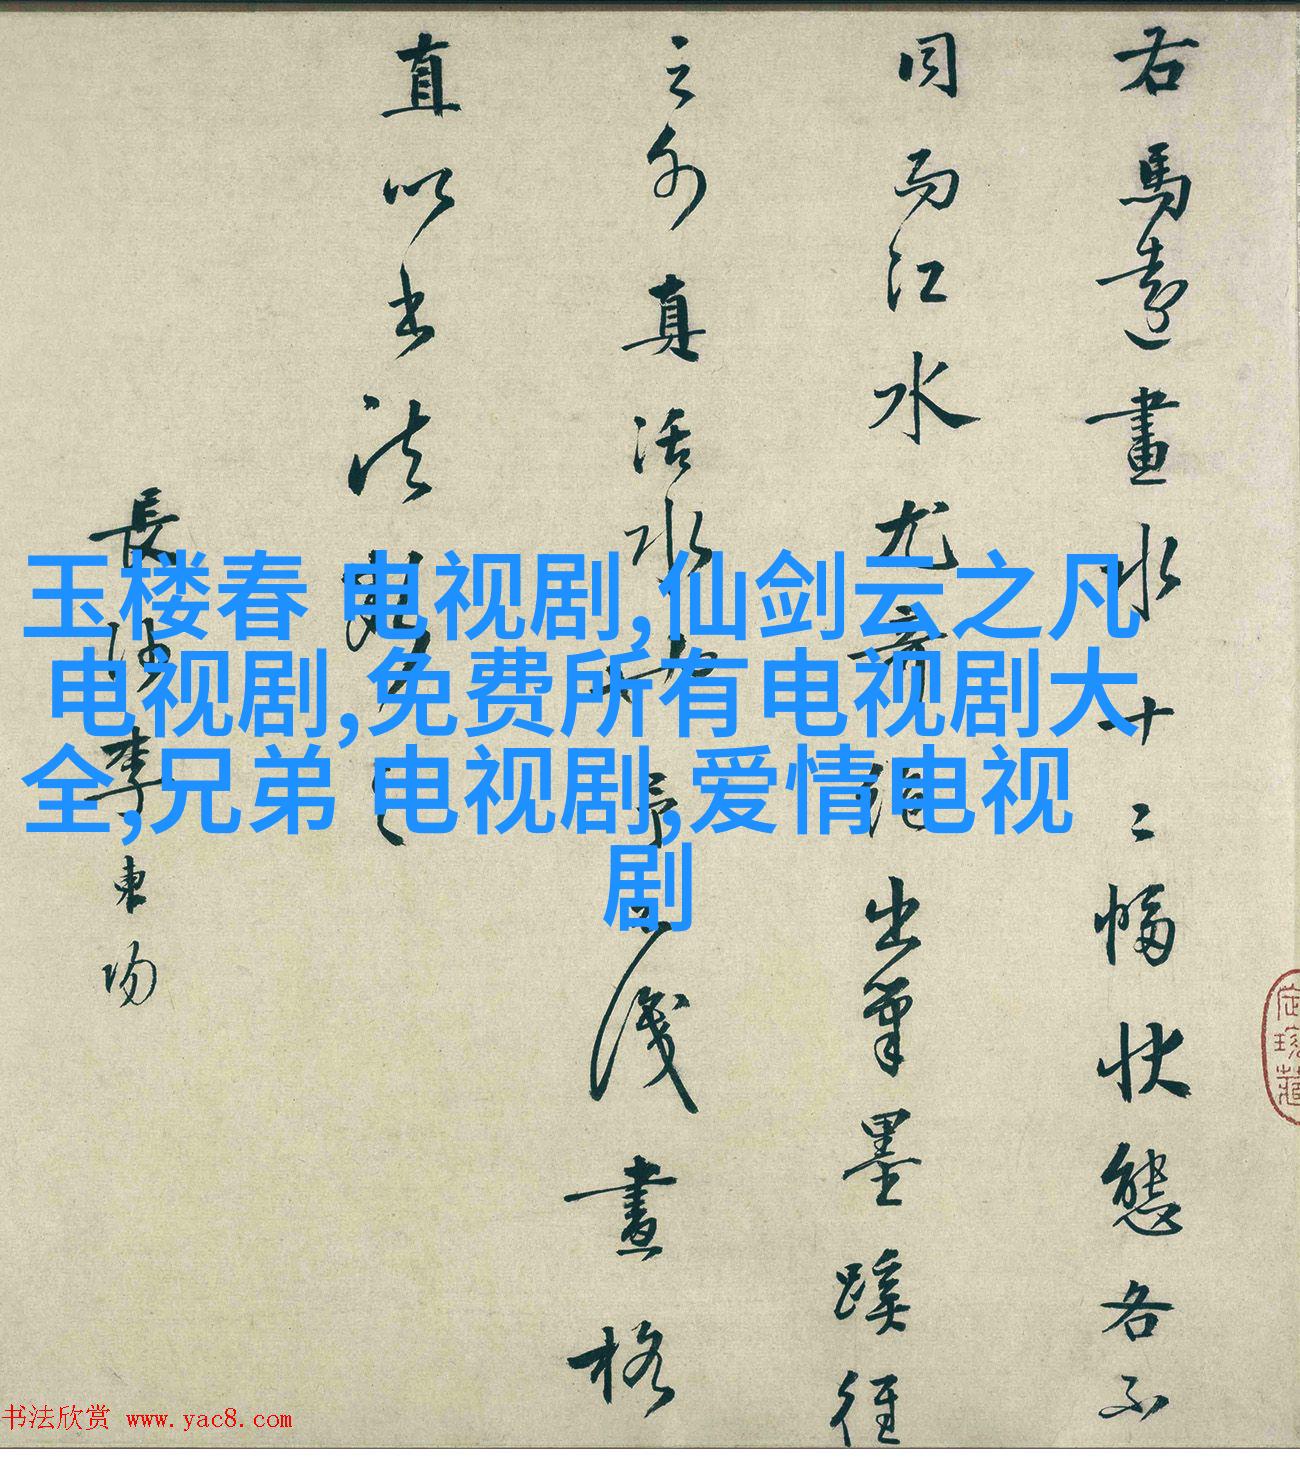 右馬遠畫水十二幅狀態各不
同而江水尤奇絕出筆墨蹊徑
之外真活水也
予不識畫格
直以書法觀之
長沙李東陽
玉楼春 电视剧,仙剑云之凡
电视剧,免费所有电视剧大
全,兄弟 电视剧,爱情电视
剧
书法欣赏 www.yac8.com